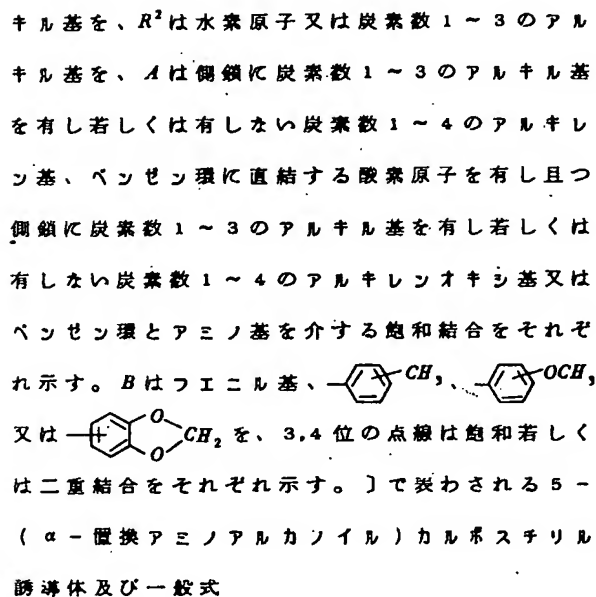 キル基を、R²は水素原子又は炭素数1～3のアル
キル基を、Aは側鎖に炭素数1～3のアルキル基
を有し若しくは有しない炭素数1～4のアルキレ
ン基、ベンゼン環に直結する酸素原子を有し且つ
側鎖に炭素数1～3のアルキル基を有し若しくは
有しない炭素数1～4のアルキレンオキシ基又は
ベンゼン環とアミノ基を介する飽和結合をそれぞ
れ示す。Bはフエニル基、CH₃、OCH₃
又は O O CH₂ を、3,4位の点線は飽和若しく
は二重結合をそれぞれ示す。〕で表わされる5－
(α－置換アミノアルカノイル)カルボスチリル
誘導体及び一般式